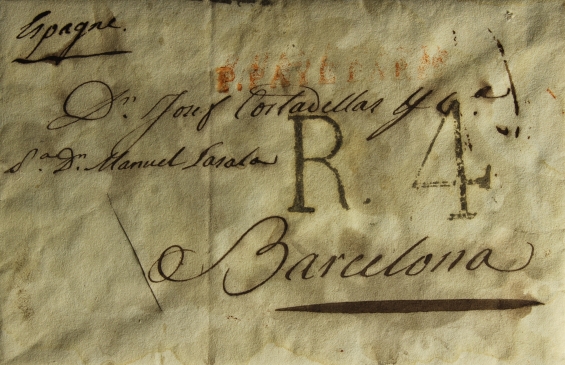 Espagne.
P. PAYÉ PARIS
Dn. Josef Cortadellas y Ca
Pa. Dn. Manuel Lasala
R. 4
Barcelona